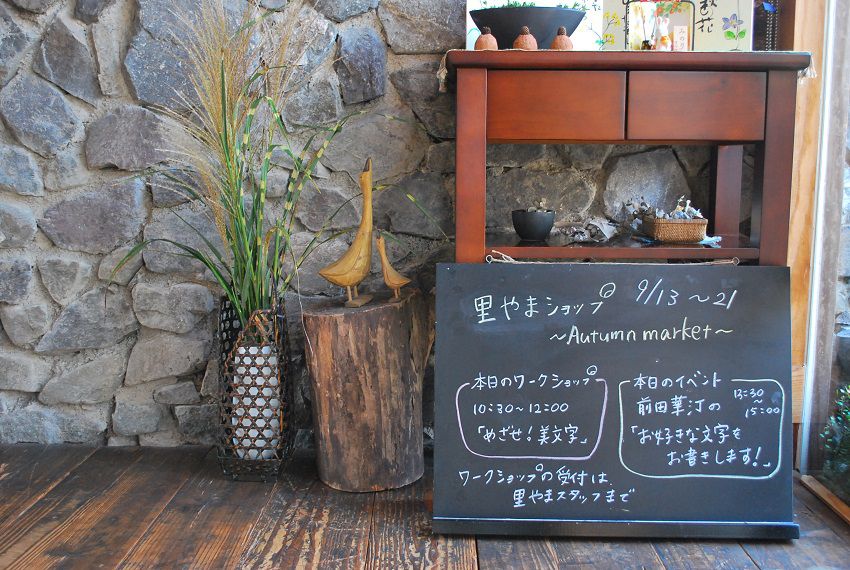 里やまショップ 9/13～21
～Autumn market～
本日のワークショップ
10:30～12:00
「めざせ!美文字」
本日のイベント
13:30～15:00
前田華汀の
「お好きな文字を
お書きします!」
ワークショップの受付は、
里やまスタッフまで